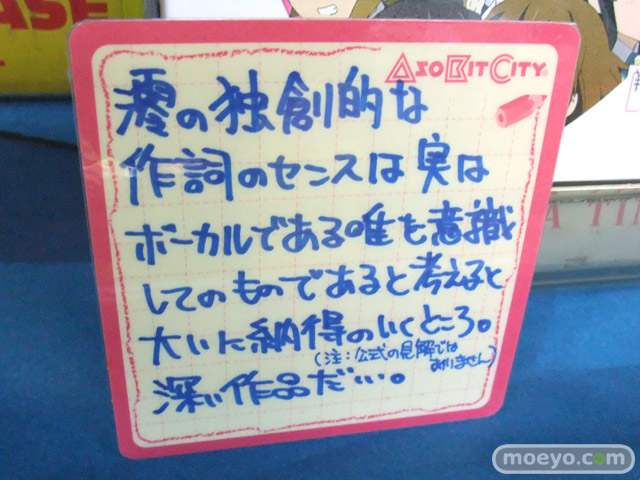 ASE
ASOBITCITY
澪の独創的な
作詞のセンスは実は
ボーカルである唯を意識
してのものであると考えると
大いに納得のいくところ。
(注:公式の見解では
ありません)
深い作品だ…。
moeyo.com